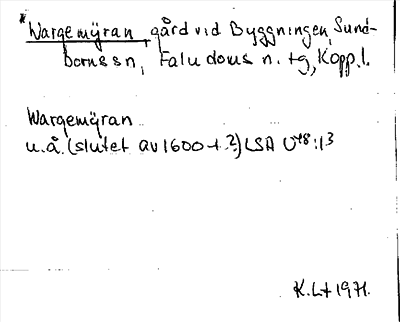 *Wargemÿran, gård vid Byggningen, Sund-
borns sn, Falu doms n. tg, Kopp. l.
Wargemÿran
u.å. (slutet av 1600-t.?) LSA U48:13
K.Lt 1971.